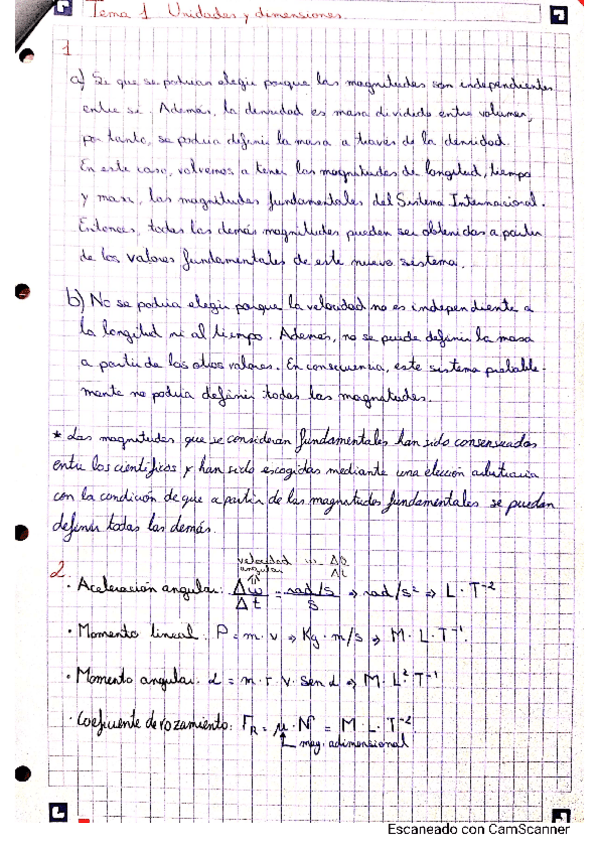 Tema 1 Unidades y dimensiones
1
a) Si que se podrían elegir porque las magnitudes son independientes
entre sí. Además, la densidad es masa dividido entre volumen,
por tanto, se podría definir la masa a través de la densidad.
En este caso, volvemos a tener las magnitudes de longitud, tiempo
y masa, las magnitudes fundamentales del Sistema Internacional.
Entonces, todas las demás magnitudes pueden ser obtenidas a partir
de los valores fundamentales de este nuevo sistema.
b) No se podría elegir porque la velocidad no es independiente a
la longitud ni al tiempo. Además, no se puede definir la masa
a partir de los otros valores. En consecuencia, este sistema probable-
mente no podría definir todas las magnitudes.
* Las magnitudes que se consideran fundamentales han sido consensuadas
entre los científicos y han sido escogidas mediante una elección arbitraria
con la condición de que a partir de las magnitudes fundamentales se puedan
definir todas las demás.
velocidad
angular
2.
· Aceleración angular: Δω/Δt = rad/s/s ⇒ rad/s² ⇒ L · T⁻²
· Momento lineal: P = m · v ⇒ Kg · m/s ⇒ M · L · T⁻¹
· Momento angular: L = m · r · v · sen α ⇒ M · L² · T⁻¹
· Coeficiente de rozamiento: F_R = μ · N = M · L · T⁻²
mag. adimensional
Escaneado con CamScanner